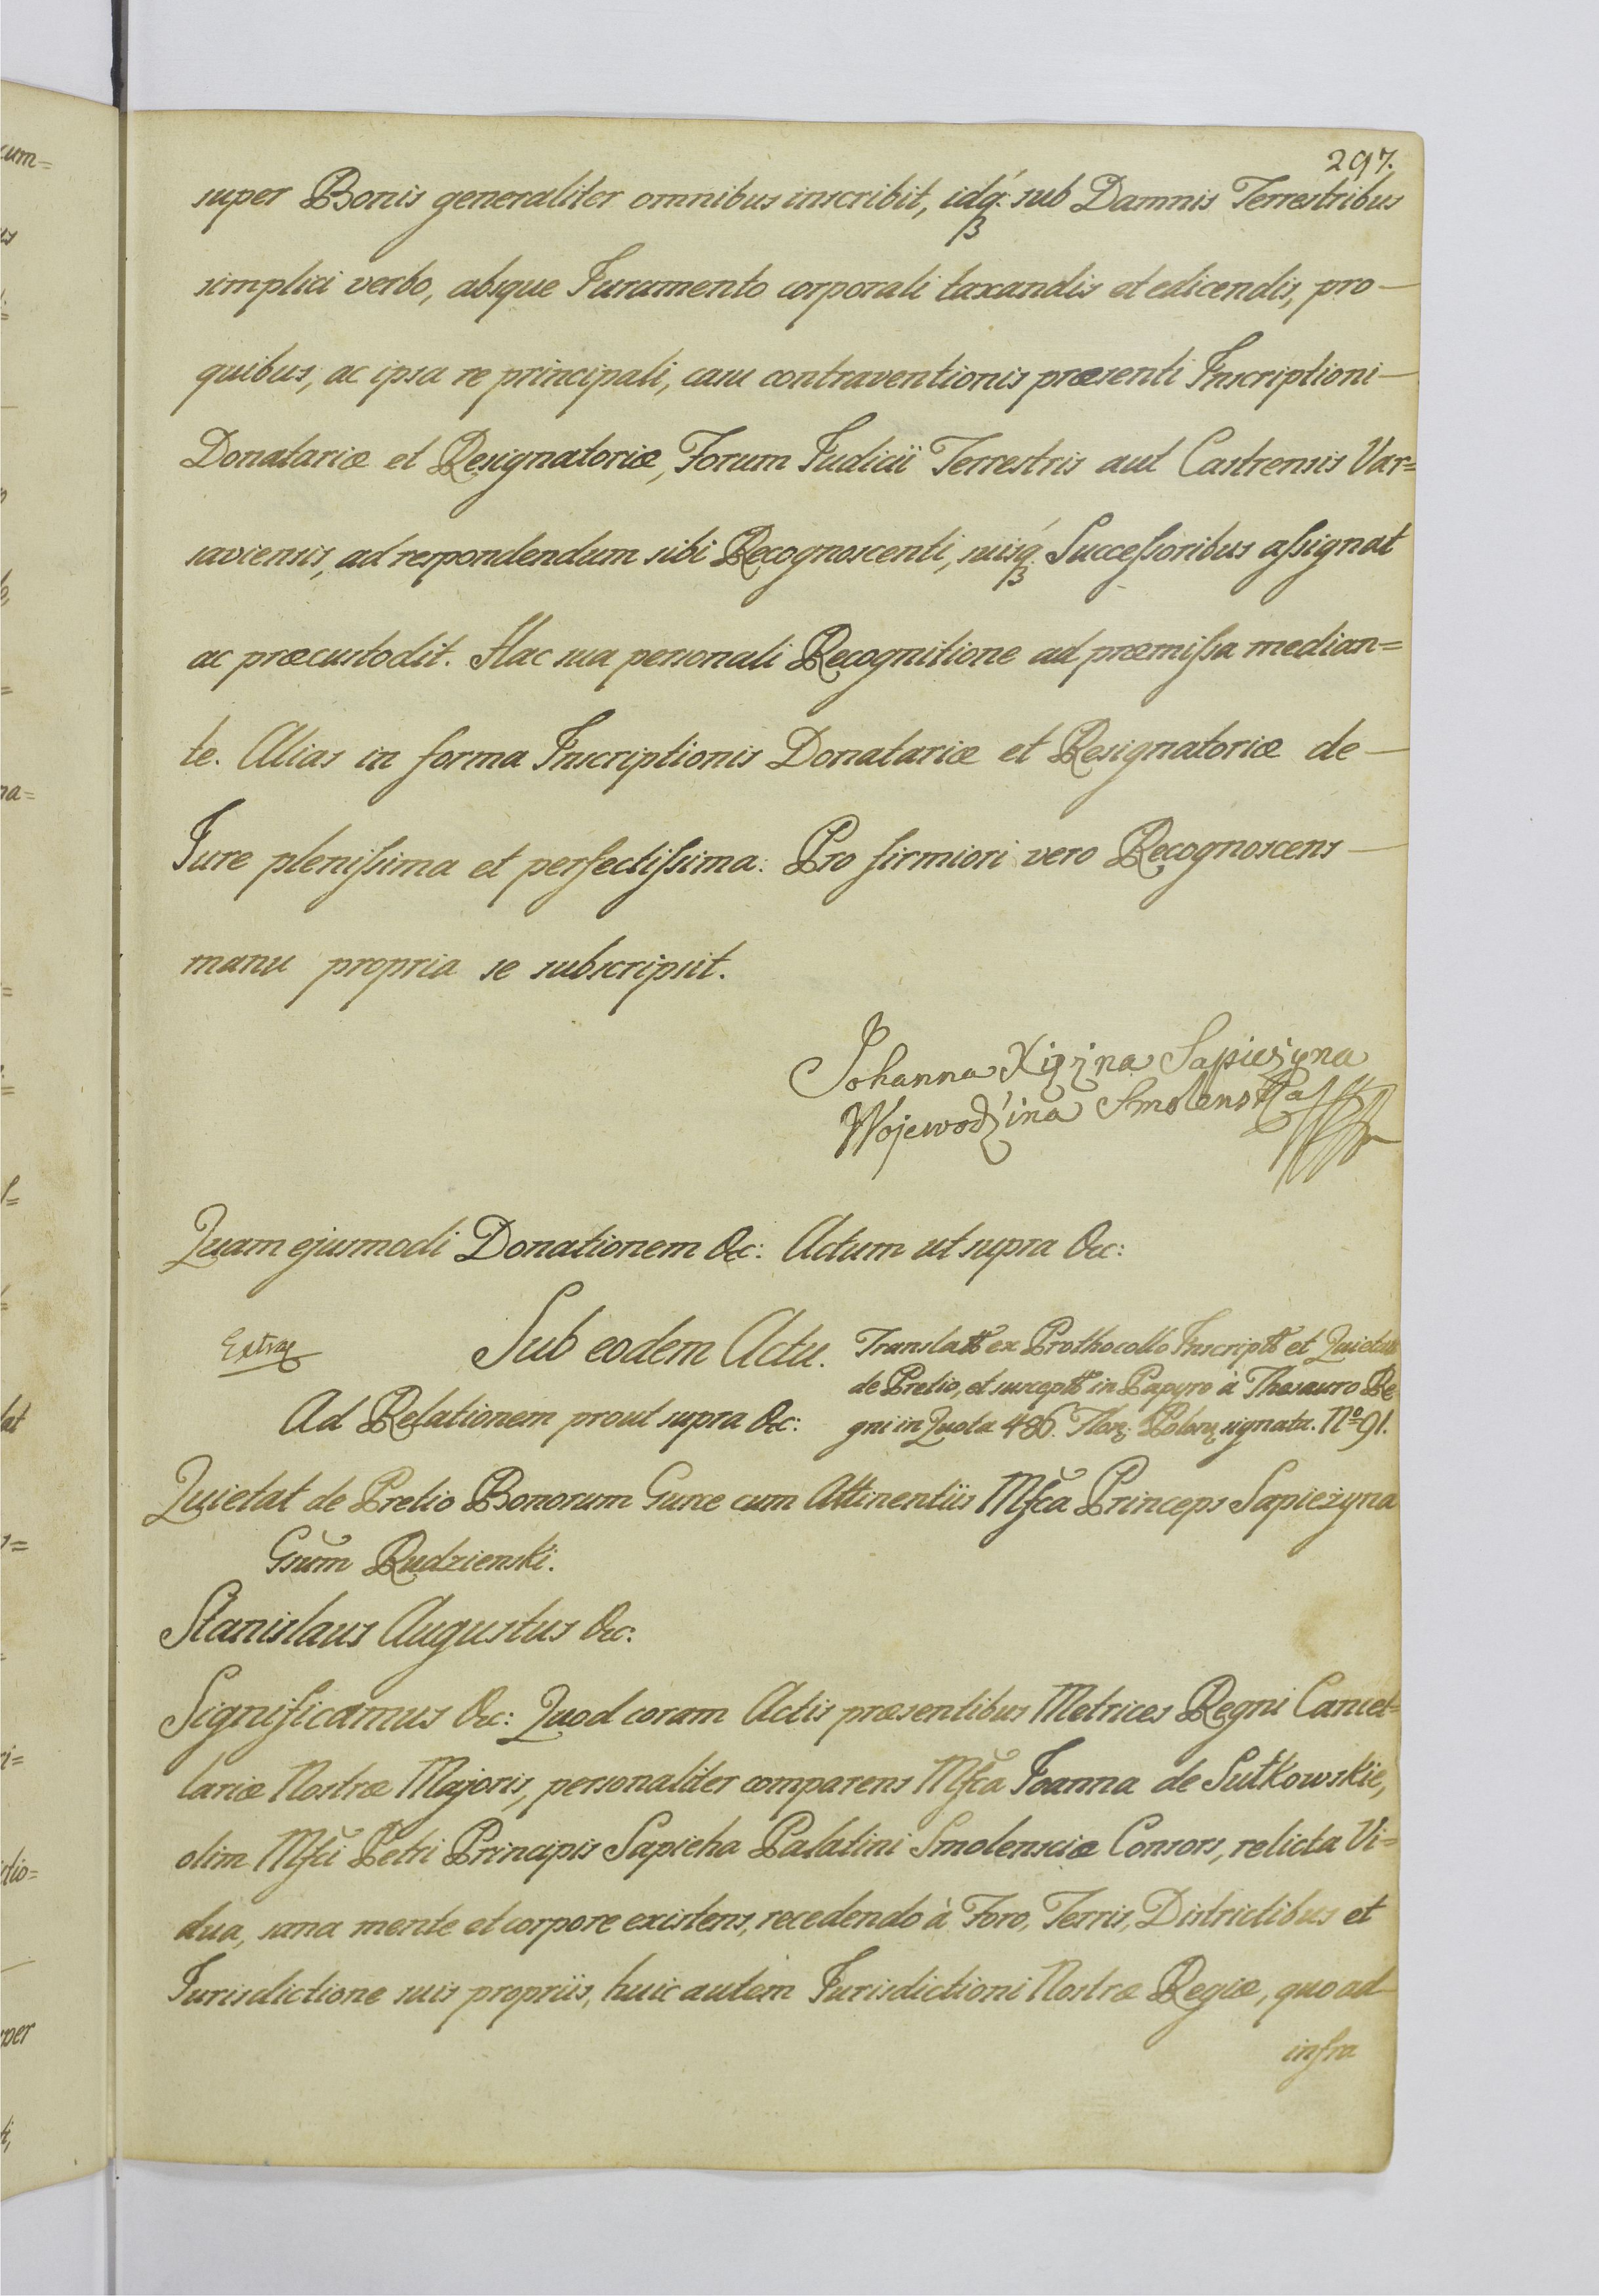 297.
super Bonis generaliter omnibus inscribit, idq́: sub Damnis Terrestribus
simplici verbo, absque Juramento corporali taxandis et edicendis, pro —
quibus, ac ipsa re principali, casu contraventionis præsenti Inscriptioni —
Donatariæ et Resignatoriæ, Forum Judicii Terrestris aut Castrensis Var=
saviensis, ad respondendum sibi Recognoscenti, suisq́: Successoribus assignat
ac præcustodit. Hac sua personali Recognitione ad præmissa median=
te. Alias in forma Inscriptionis Donatariæ et Resignatoriæ de —
Jure plenissima et perfectissima: Pro firmiori vero Recognoscens —
manu propria se subscripsit.
Johanna Xięzna Sapiezyna
Wojewodzina Smolenska
Quam ejusmodi Donationem &c: Actum ut supra &c:
Sub eodem Actu. Translat ex Prothocollo Inscript et
Extrax
de Pretio, et suscept in Papyro à Thesauro Re
Ad Relationem prout supra &c: gni in Quota 486. Flor. Polon signata. No 91.
Quietat de Pretio Bonorum Gurce cum Attinentiis Mfca Princeps Sapieżyna
Gsum Rudzienski.
Stanislaus Augustus &c:
Significamus &c: Quod coram Actis præsentibus Metrices Regni Cancel=
lariæ Nostræ Majoris, personaliter comparens Mfca Joanna de Sułkowskie,
olim Mfci Petri Principis Sapieha Palatini Smolensciæ Consors, relicta Vi=
dua, sana mente et corpore existens, recedendo à Foro, Terris, Districtibus et
Jurisdictione suis propriis, huic autem Jurisdictioni Nostræ Regiæ, quo ad
infra